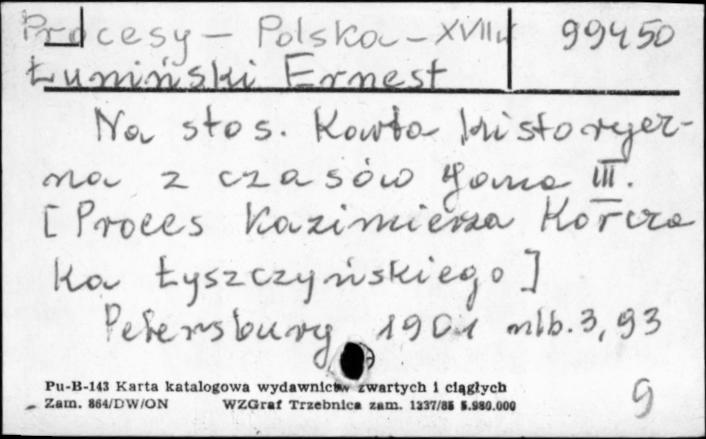 Procesy – Polska – XVII w 99450
Łuniński Ernest
Na stos. Karta historycz-
na z czasów Jana III.
[Proces Kazimierza Korcza
ka Łyszczyńskiego]
Petersburg 1901 nlb. 3, 93
Pu-B-143 Karta katalogowa wydawnictw zwartych i ciągłych
Zam. 864/DW/ON WZGraf Trzebnica zam. 1237/85 5.980.000
9